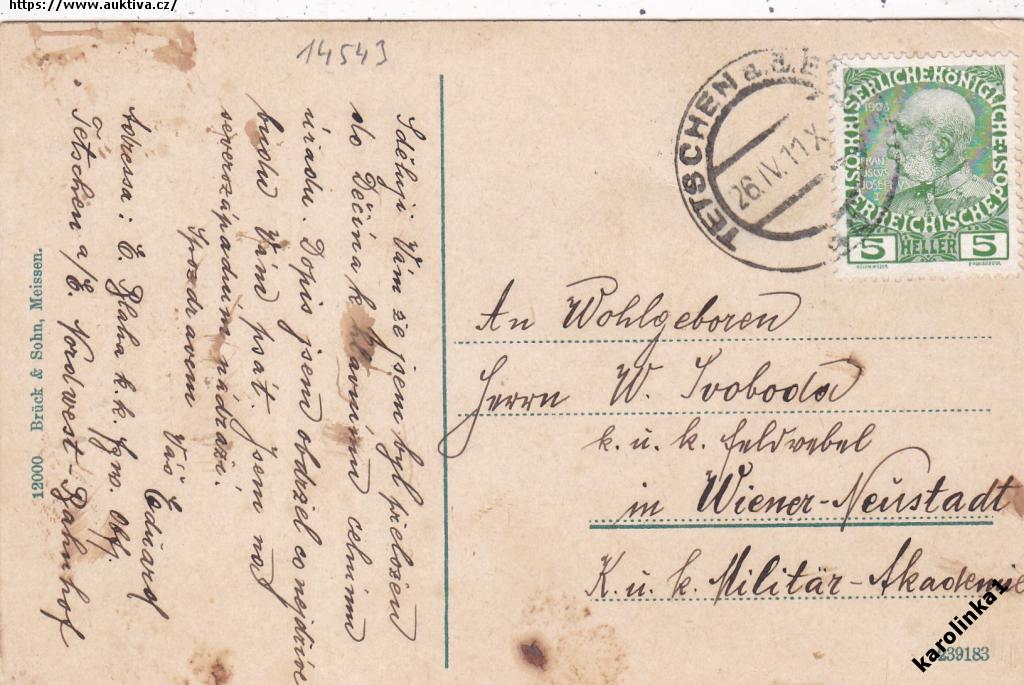 https://www.auktiva.cz/
14543
Sděluji Vám že jsem byl přeložen
do Děčína k hlavnímu celnímu
úřadu. Dopis jsem obdržel co nejdříve
budu Vám psát. Jsem na
severozápadním nádraží.
S pozdravem
Váš Eduard
Adressa: E. Blaha k. k.
Tetschen a/E. Nordwest-Bahnhof
12000 Brück & Sohn, Meissen.
TETSCHEN a.d.E
26.IV.11.X
KAISERLICHE KÖNIGLICHE ÖSTERREICHISCHE POST
1908
FRAN
CISCVS
JOSEF I
5 HELLER 5
An Wohlgeboren
Herrn W. Svoboda
k. u. k. Feldwebel
in Wiener-Neustadt
K. u. k. Militär-Akademie
239183
karolinka1